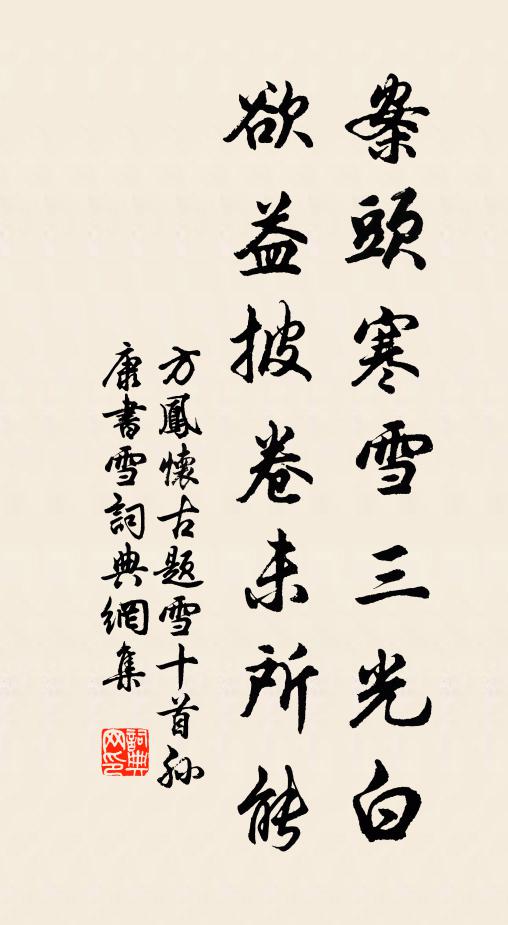 案頭寒雪三光白
欲益披卷未所能
方鳳懷古題雪十首孫
康書雪詞典網集
詞典
网印